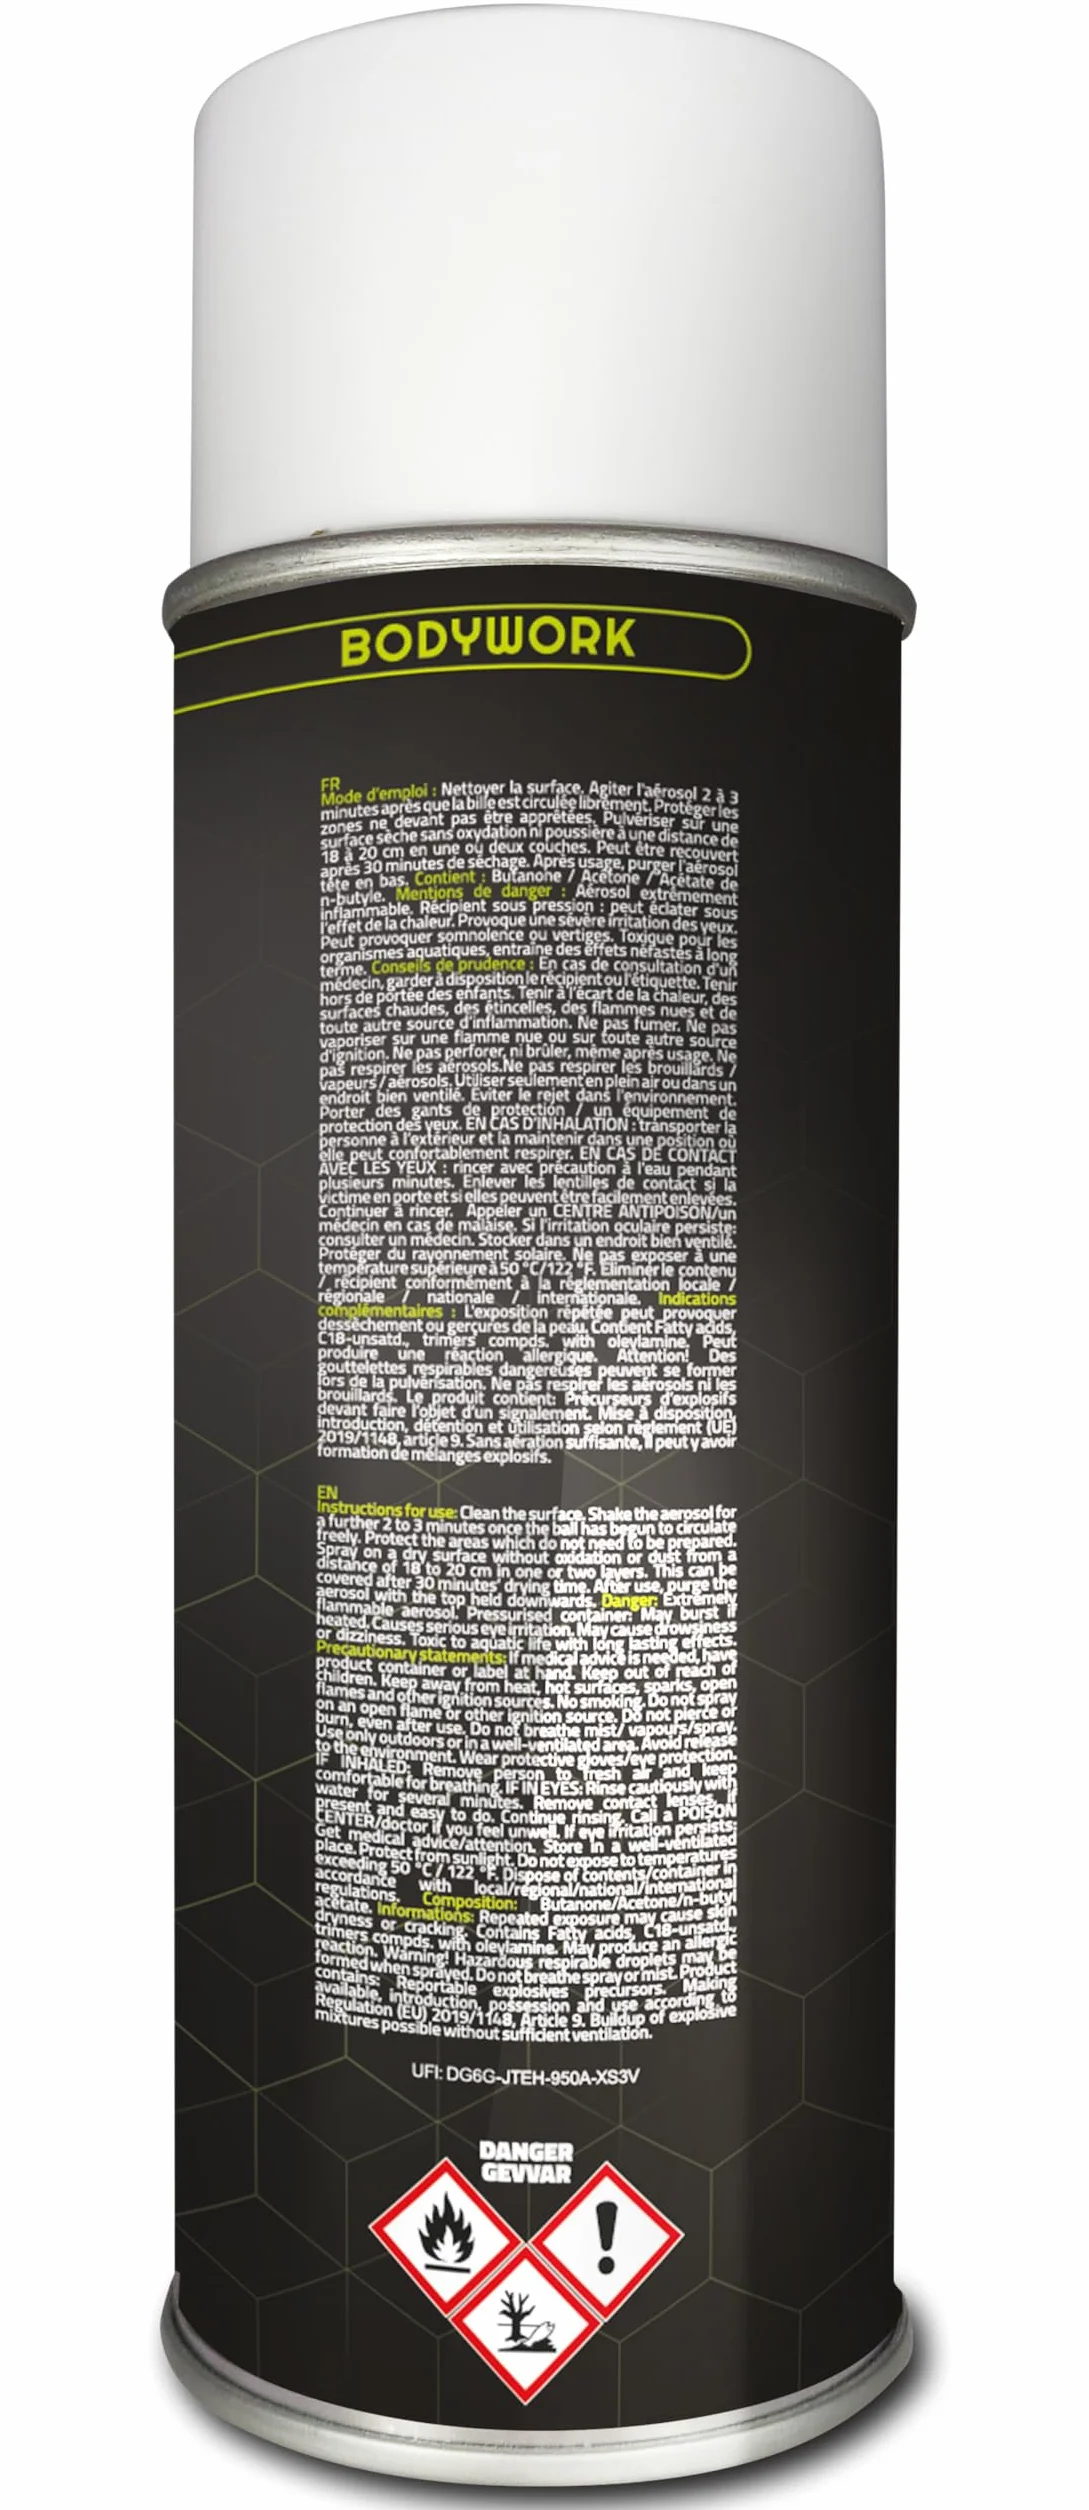 BODYWORK
FR
Mode d'emploi : Nettoyer la surface. Agiter l'aérosol 2 à 3
minutes après que la bille est circulée librement. Protéger les
zones ne devant pas être apprêtées. Pulvériser sur une
surface sèche sans oxydation ni poussière à une distance de
18 à 20 cm en une ou deux couches. Peut être recouvert
après 30 minutes de séchage. Après usage, purger l'aérosol
tête en bas. Contient : Butanone / Acétone / Acétate de
n-butyle. Mentions de danger : Aérosol extrêmement
inflammable. Récipient sous pression : peut éclater sous
l'effet de la chaleur. Provoque une sévère irritation des yeux.
Peut provoquer somnolence ou vertiges. Toxique pour les
organismes aquatiques, entraîne des effets néfastes à long
terme. Conseils de prudence : En cas de consultation d'un
médecin, garder à disposition le récipient ou l'étiquette. Tenir
hors de portée des enfants. Tenir à l'écart de la chaleur, des
surfaces chaudes, des étincelles, des flammes nues et de
toute autre source d'inflammation. Ne pas fumer. Ne pas
vaporiser sur une flamme nue ou sur toute autre source
d'ignition. Ne pas perforer, ni brûler, même après usage. Ne
pas respirer les aérosols.Ne pas respirer les brouillards /
vapeurs / aérosols. Utiliser seulement en plein air ou dans un
endroit bien ventilé. Éviter le rejet dans l'environnement.
Porter des gants de protection / un équipement de
protection des yeux. EN CAS D'INHALATION : transporter la
personne à l'extérieur et la maintenir dans une position où
elle peut confortablement respirer. EN CAS DE CONTACT
AVEC LES YEUX : rincer avec précaution à l'eau pendant
plusieurs minutes. Enlever les lentilles de contact si la
victime en porte et si elles peuvent être facilement enlevées.
Continuer à rincer. Appeler un CENTRE ANTIPOISON/un
médecin en cas de malaise. Si l'irritation oculaire persiste:
consulter un médecin. Stocker dans un endroit bien ventilé.
Protéger du rayonnement solaire. Ne pas exposer à une
température supérieure à 50 °C/122 °F. Éliminer le contenu
/ récipient conformément à la réglementation locale /
régionale / nationale / internationale. Indications
complémentaires : L'exposition répétée peut provoquer
dessèchement ou gerçures de la peau. Contient Fatty acids,
C18-unsatd., trimers compds. with oleylamine. Peut
produire une réaction allergique. Attention! Des
gouttelettes respirables dangereuses peuvent se former
lors de la pulvérisation. Ne pas respirer les aérosols ni les
brouillards. Le produit contient: Précurseurs d'explosifs
devant faire l'objet d'un signalement. Mise à disposition,
introduction, détention et utilisation selon règlement (UE)
2019/1148, article 9. Sans aération suffisante, il peut y avoir
formation de mélanges explosifs.
EN
Instructions for use: Clean the surface. Shake the aerosol for
a further 2 to 3 minutes once the ball has begun to circulate
freely. Protect the areas which do not need to be prepared.
Spray on a dry surface without oxidation or dust from a
distance of 18 to 20 cm in one or two layers. This can be
covered after 30 minutes' drying time. After use, purge the
aerosol with the top held downwards. Danger: Extremely
flammable aerosol. Pressurised container: May burst if
heated. Causes serious eye irritation. May cause drowsiness
or dizziness. Toxic to aquatic life with long lasting effects.
Precautionary statements: If medical advice is needed, have
product container or label at hand. Keep out of reach of
children. Keep away from heat, hot surfaces, sparks, open
flames and other ignition sources. No smoking. Do not spray
on an open flame or other ignition source. Do not pierce or
burn, even after use. Do not breathe mist/ vapours/spray.
Use only outdoors or in a well-ventilated area. Avoid release
to the environment. Wear protective gloves/eye protection.
IF INHALED: Remove person to fresh air and keep
comfortable for breathing. IF IN EYES: Rinse cautiously with
water for several minutes. Remove contact lenses, if
present and easy to do. Continue rinsing. Call a POISON
CENTER/doctor if you feel unwell. If eye irritation persists:
Get medical advice/attention. Store in a well-ventilated
place. Protect from sunlight. Do not expose to temperatures
exceeding 50 °C/ 122 °F. Dispose of contents/container in
accordance with local/regional/national/international
regulations. Composition: Butanone/Acetone/n-butyl
acetate. Informations: Repeated exposure may cause skin
dryness or cracking. Contains Fatty acids, C18-unsatd.,
trimers compds. with oleylamine. May produce an allergic
reaction. Warning! Hazardous respirable droplets may be
formed when sprayed. Do not breathe spray or mist. Product
contains: Reportable explosives precursors. Making
available, introduction, possession and use according to
Regulation (EU) 2019/1148, Article 9. Buildup of explosive
mixtures possible without sufficient ventilation.
UFI: DG6G-JTEH-950A-XS3V
DANGER
GEVVAR